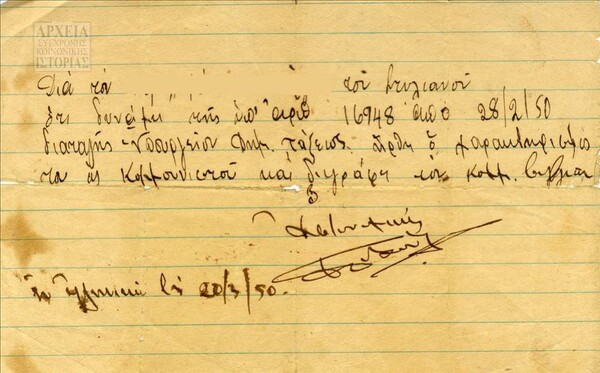 ΑΡΧΕΙΑ
ΣΥΓΧΡΟΝΗΣ
ΚΟΙΝΩΝΙΚΗΣ
ΙΣΤΟΡΙΑΣ
Διά τον του Στυλιανού
ότι δυνάμει της υπ' αριθ 16948 από 28/2/50
διαταγής Υπουργείου Δημ. τάξεως ήρθη ο χαρακτηρισμός
του ως Κομμουνιστού και διεγράφη
Αστυνομικός
Εν τη 20/3/50.